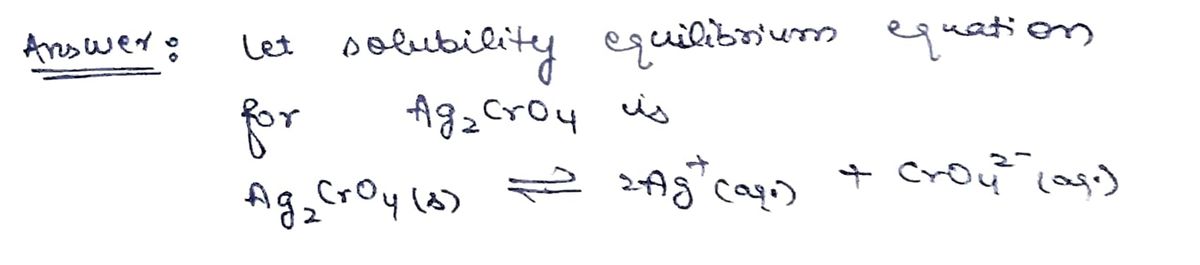 Answer: Let solubility equilibrium equation
for Ag₂CrO₄ is
Ag₂CrO₄(s) ⇌ 2Ag⁺(aq.) + CrO₄²⁻(aq.)